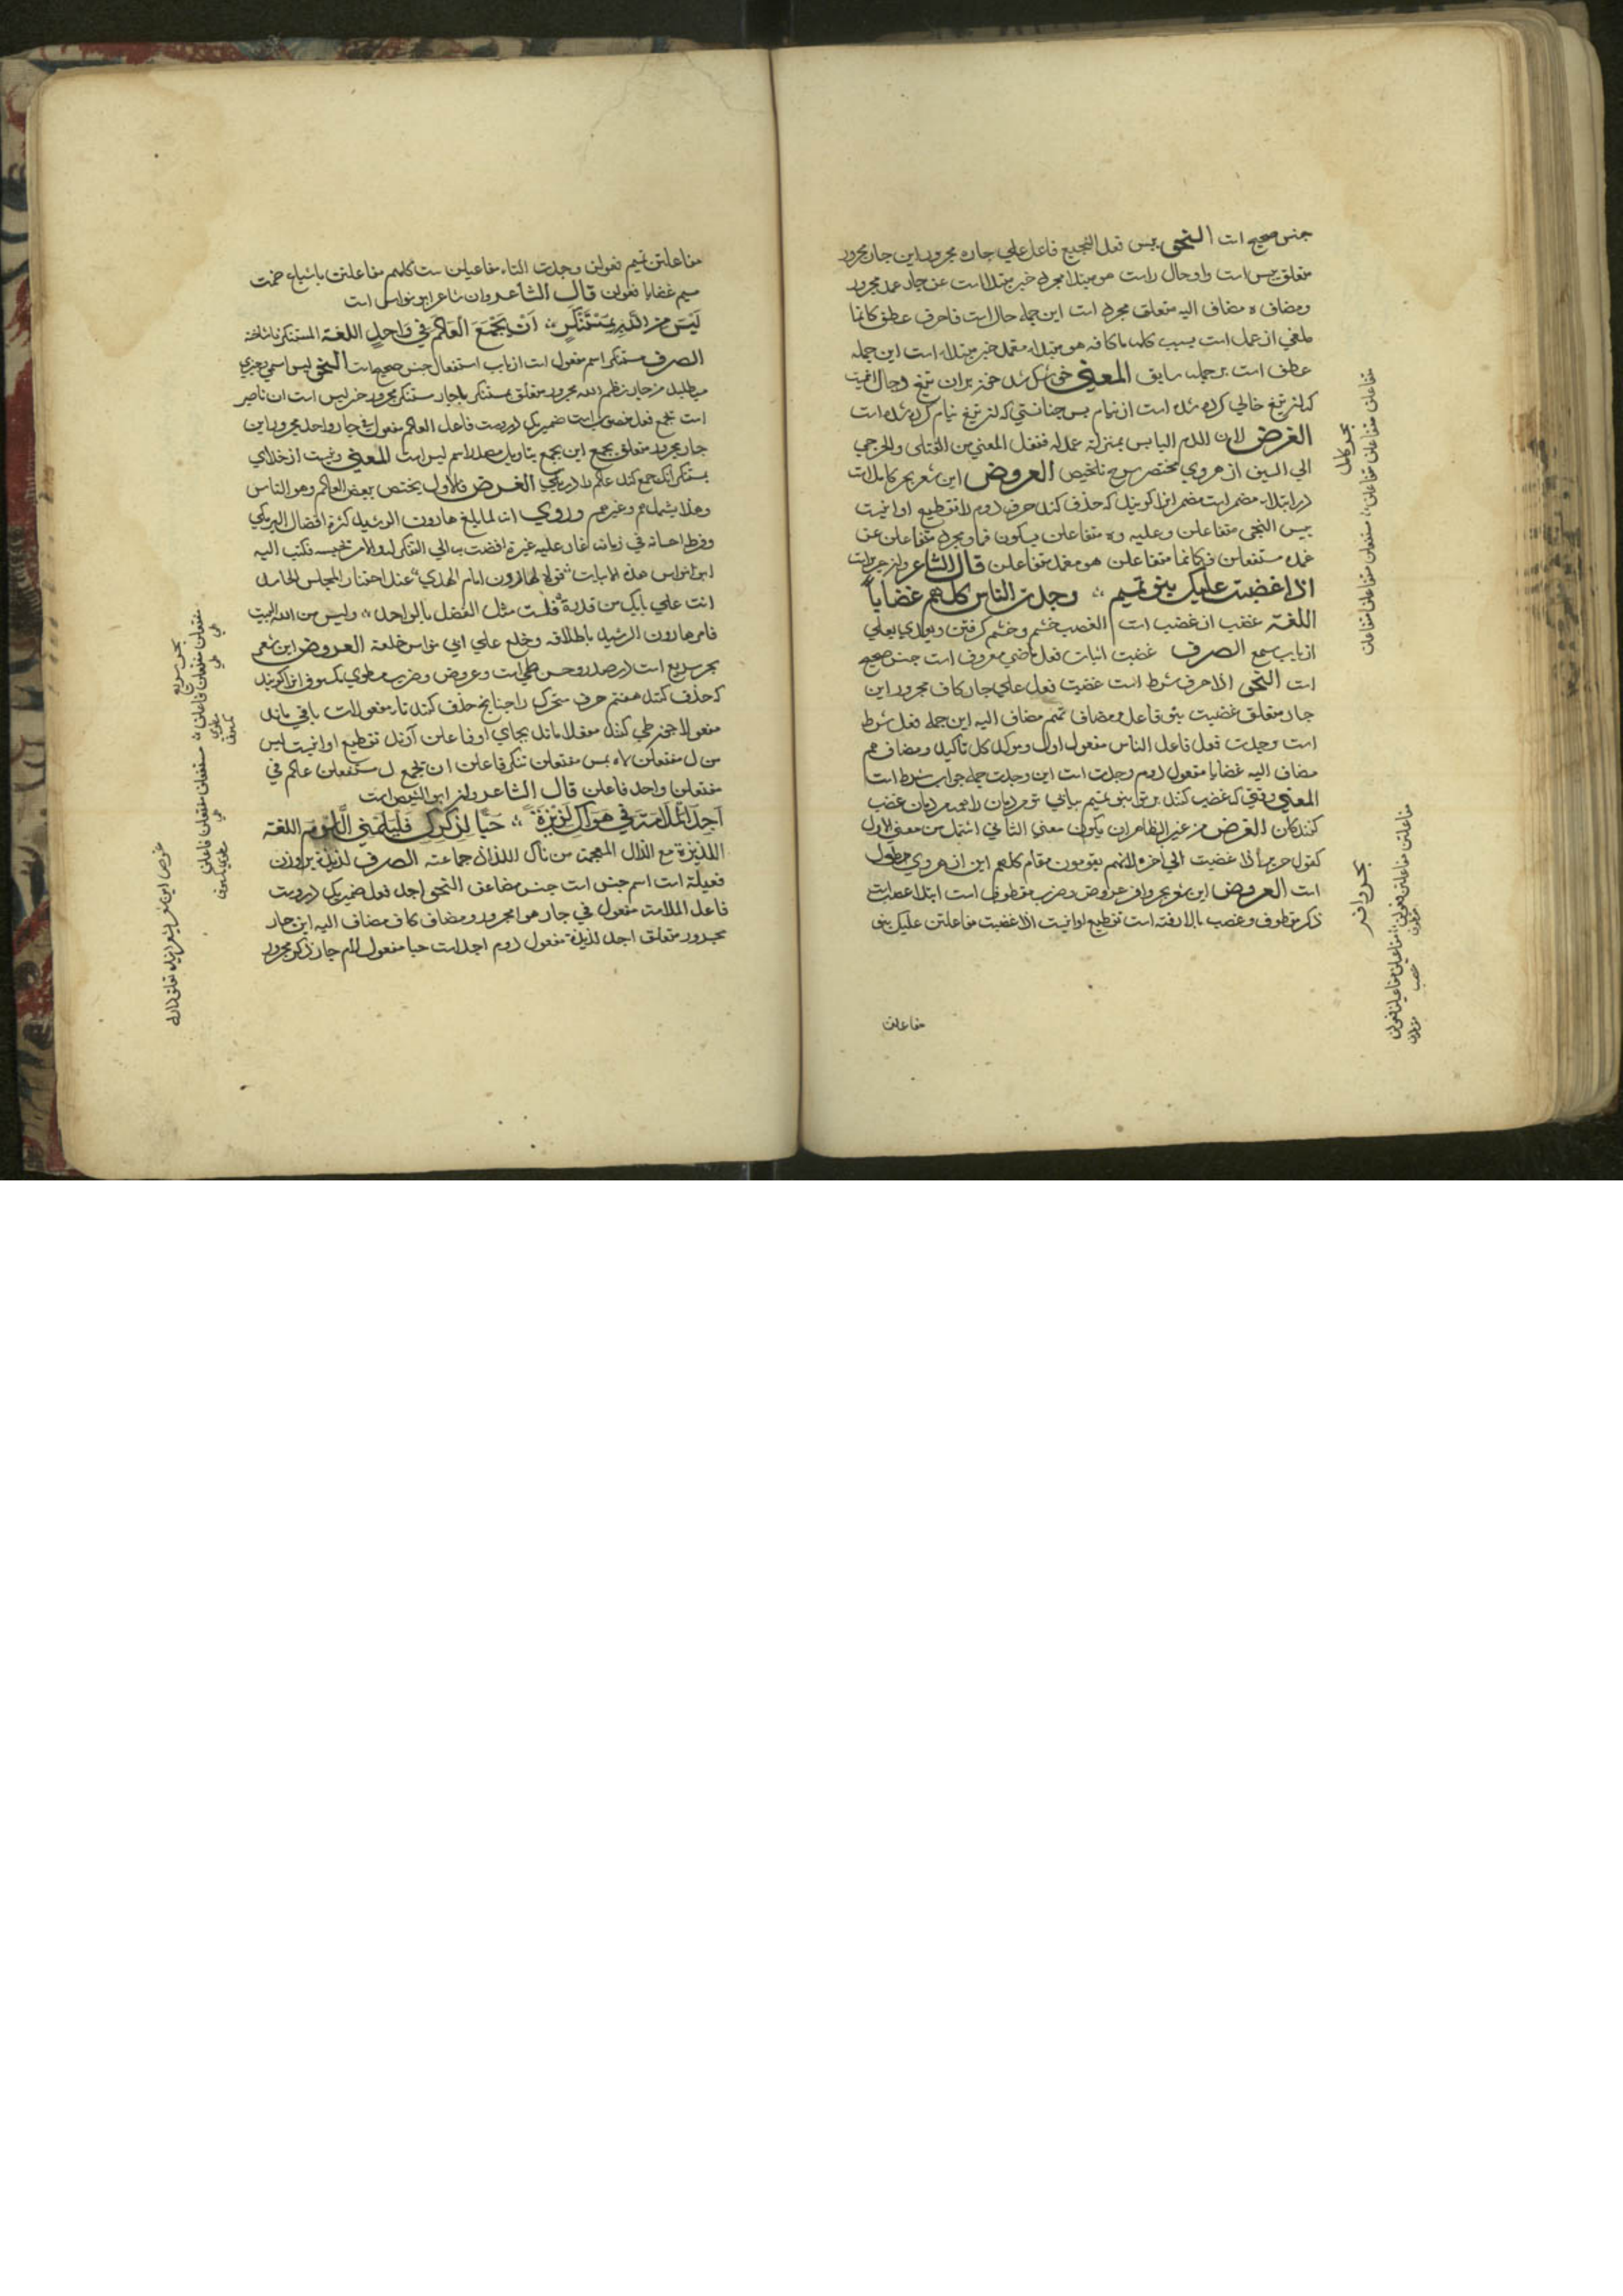 جنس صحیح است النحو یبس فعل النجیع فاعل علي جاره مجرور این جار مجرور
متعلق یبس است واو حال راست هو مبتدا مجرد خبر مبتدا است عن جار غمد مجرور
ومضاف ه مضاف الیه متعلق مجرد است این جمله حال است فا حرف عطف کانما
ملغي از عمل است بسبب کلمه ما کافه هو مبتدا مغمد خبر مبتدا است این جمله
عطف است بر جمله سابق المعني خشک شد خون بران تیغ وحال آنست
که ان تیغ خالي کرده شده است از نیام پس چنانستي که ان تیغ نیام کرده شده است
الغرض لان للدم الیابس بمنزلة غمد له فنقل المعني من القتلی والجرحي
الي السیف از هروي مختصر شرح تلخیص العروض این شعر بحر کامل است
در ابتدا مضمر است مضمر انرا گویند که حذف کند حرف دوم را تقطیع او اینست
یبس النجی متفاعلن ع علیه وه متفاعلن بسکون فا ومجرد متفاعلن عن
غمده مستفعلن فکانما متفاعلن هو مغمد متفاعلن قال الشاعر وان جریر است
اذا غضبت علیک بنو تمیم ؞ وجدت الناس کلهم غضابا
اللغة غضب از غضب است الغضب خشم وخشم گرفتن ویعدي بعلي
از باب سمع الصرف غضبت اثبات فعل ماضي معروف است جنس صحیح
است النحو اذا حرف شرط است غضبت فعل علي جار کاف مجرور این
جار متعلق غضبت بنو فاعل ومضاف تمیم مضاف الیه این جمله فعل شرط
است وجدت فعل فاعل الناس مفعول اول وموکد کل تاکید ومضاف هم
مضاف الیه غضابا مفعول دوم وجدت است این وجدت جمله جواب شرط است
المعني وقتي که غضب کنند بر تو بنو تمیم بیابي تو مردمان را همه مردمان غضب
کنندگان الغرض من غیر الظاهر ان یکون معني الثاني اشمل من معني الاول
کقول جریر اذا غضبت الي اخره لانهم یقومون مقام کلهم این از هروي مطول
است العروض این شعر بحر وافر عروض وضرب مقطوف است ابتدا عصب است
ذکر مقطوف وعصب بالا رفته است تقطیع او اینست اذا غضبت مفاعلتن علیک بنو
مفاعلتن
بحر کامل
متفاعلن متفاعلن متفاعلن ؞ مستفعلن متفاعلن متفاعلن
بحر وافر
مفاعلتن مفاعلتن فعولن ؞ مفاعیلن مفاعیلن فعولن
مفاعلتن تمیم فعولن وجدت الناء مفاعیلن ست کلهم مفاعلتن باشباع ضمت
میم غضابا فعولن قال الشاعر وان شاعر ابو نواس است
لَیْسَ مِنَ اللّٰهِ بِمُسْتَنْکَرٍ ؞ اَنْ یَجْمَعَ الْعَالَمَ فِي وَاحِدٍ اللغة المستنکر ناشناخته
الصرف مستنکر اسم مفعول است از باب استفعال جنس صحیح است النحو لیس اسمي وخبري
میطلبد من جار الله مجرور متعلق بمستنکر با جار مستنکر مجرور خبر لیس است ان ناصبه
است یجمع فعل منصوب است ضمیر یکي دروست فاعل العالم مفعول في جار واحد مجرور این
جار مجرور متعلق یجمع این یجمع بتاویل مصدر اسم لیس است المعني ونیست از خداي
مستنکر آنکه جمع کند عالم را در یکي الغرض فالاول یختص ببعض العالم وهو الناس
وهذا یشملهم وغیرهم وروي انه لما بلغ هارون الرشید کثرة افضال البرمکي
وفرط احسانه في زمانه اغار علیه غیرة افضت به الي
ابو نواس هذه الابیات قولا لهارون امام الهدي ؞ عند احتفال المجلس الحاشد
انت علي ما بک من قدرة ؞ فلست مثل الفضل بالواحد ؞ ولیس من الله البیت
فامر هارون الرشید باطلاقه وخلع علي ابي نواس خلعة العروض این شعر
بحر سریع است در صدر وحشو طي است وعروض وضرب مطوي مکسوف انرا گویند
که حذف کنند هفتم حرف متحرک را چنانچه حذف کنند تا از مفعولات باقي ماند
مفعولا چون طي کنند مفعلا ماند بجاي او فاعلن آرند تقطیع او اینست لیس
من ل مفتعلن لاه بمس مفتعلن تنکر فاعلن ان یجمع ل مستفعلن عالم في
مفتعلن واحد فاعلن قال الشاعر وان ابو الشیص است
اَجِدُ الْمَلَامَةَ فِي هَوَاکَ لَذِیْذَةً ؞ حُبًّا لِذِکْرِکَ فَلْیَلُمْنِي اللُّوَّمُ اللغة
اللذیذة مع الذال المعجمة جماعته الصرف لذیذة بر وزن
فعیلة است اسم جنس است جنس مضاعف النحو اجد فعل ضمیر یکي دروست
فاعل الملامة مفعول في جار هوا مجرور ومضاف کاف مضاف الیه این جار
مجرور متعلق اجد لذیذة مفعول دوم اجد است حبا مفعول له لام جار ذکر مجرور
بحر سریع
مفتعلن مفتعلن فاعلن ؞ مستفعلن مفتعلن فاعلن
طي طي مطوي مکسوف